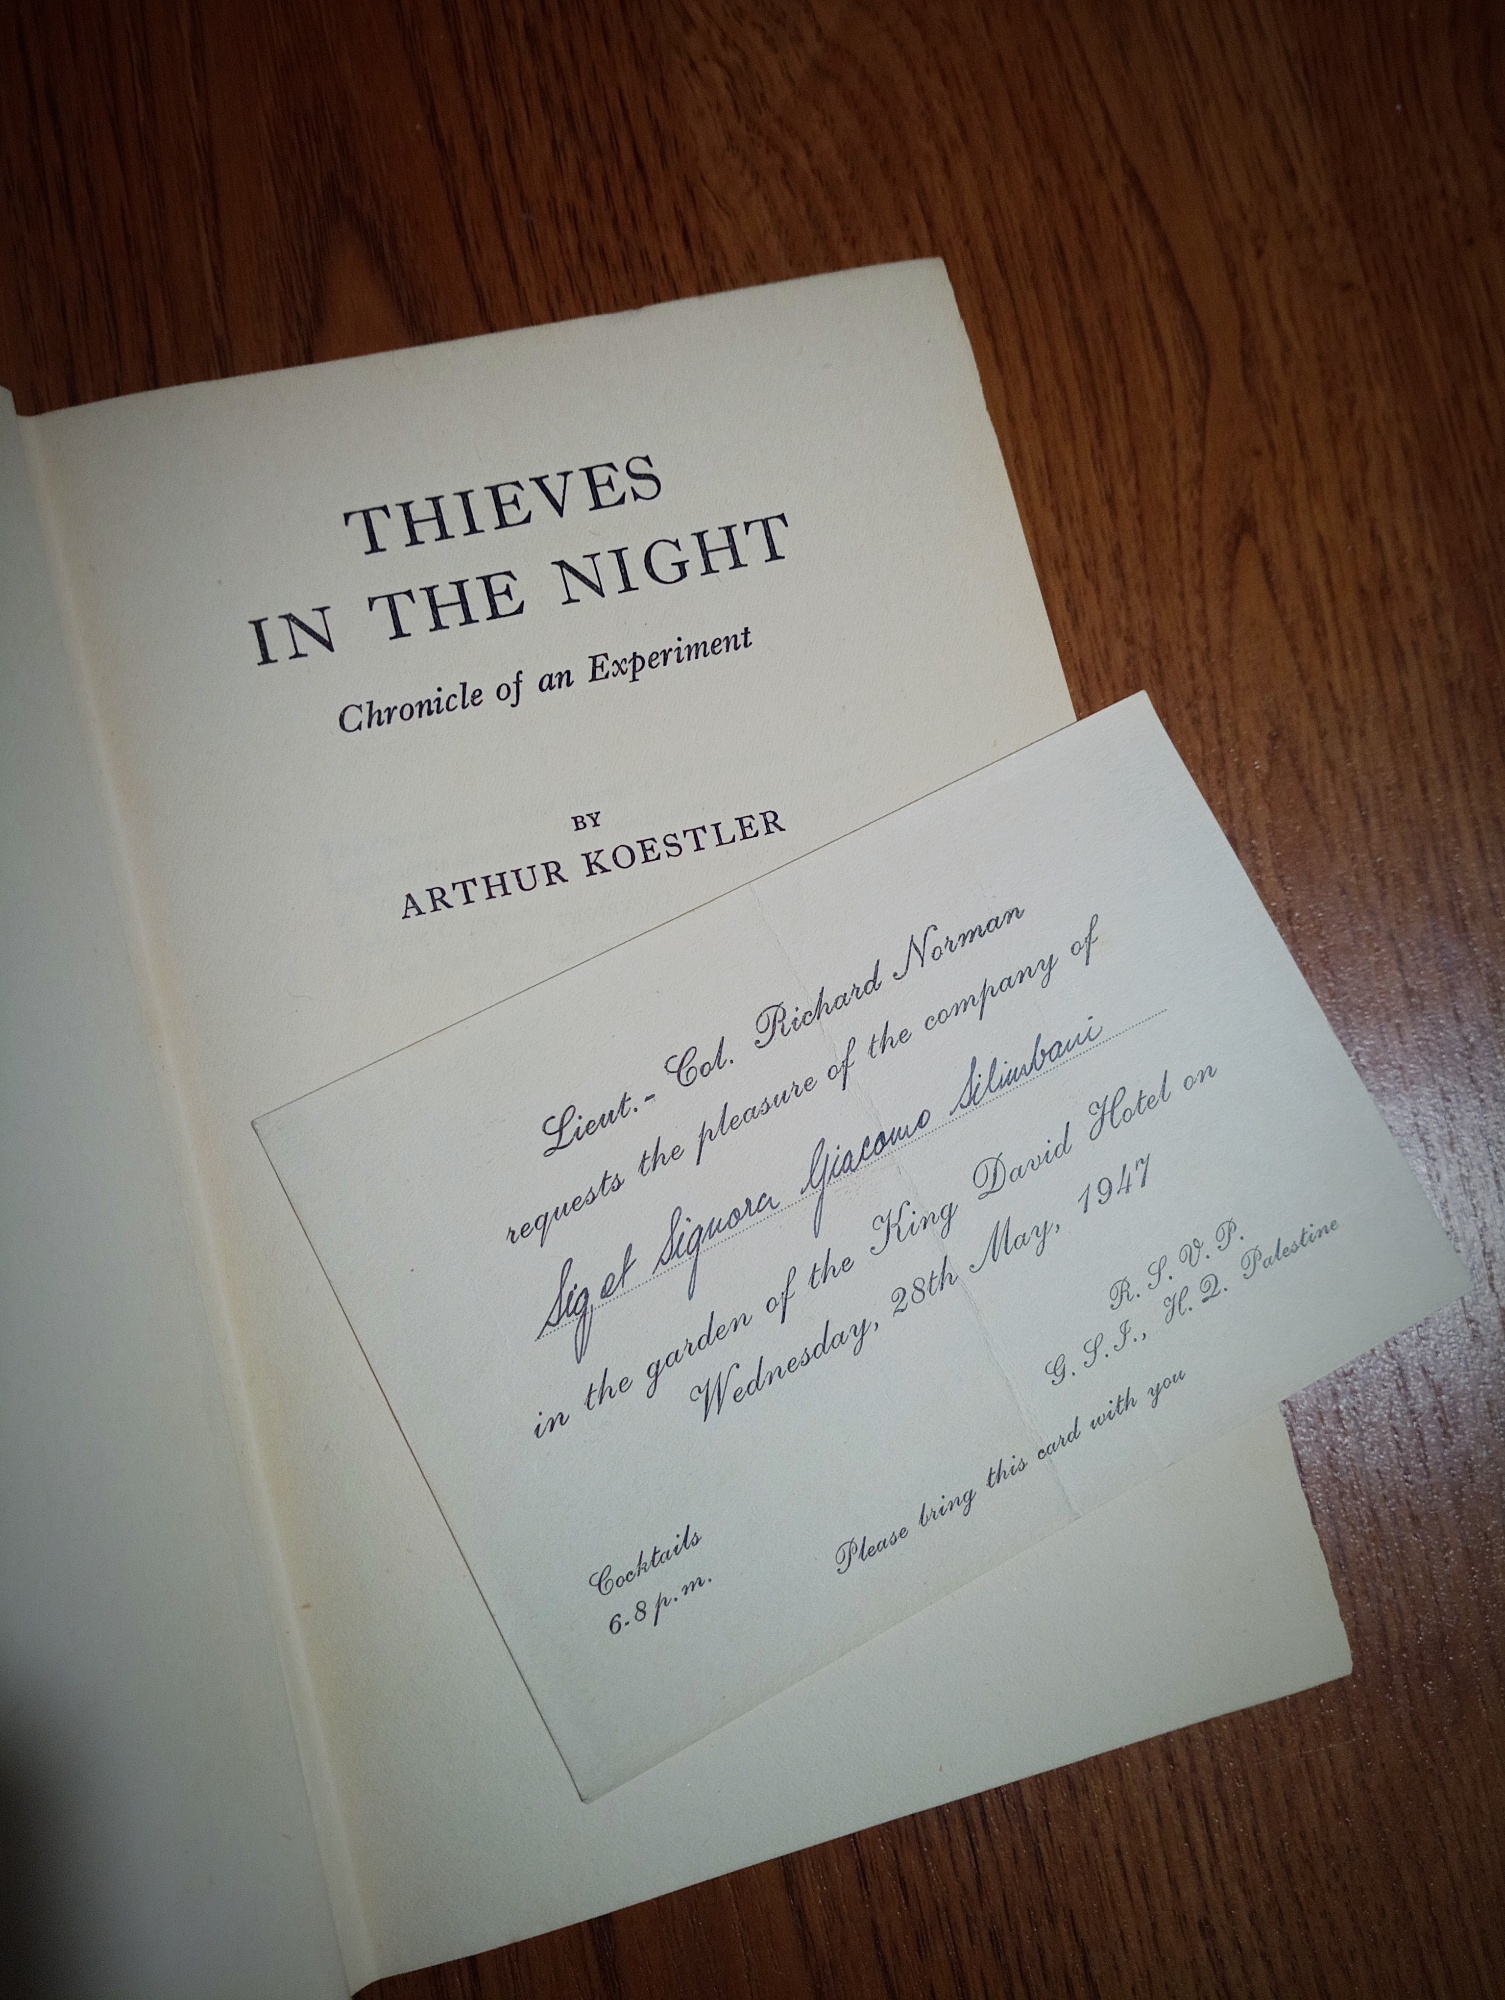 THIEVES
IN THE NIGHT
Chronicle of an Experiment
BY
ARTHUR KOESTLER
Lieut.- Col. Richard Norman
requests the pleasure of the company of
Sig et Signora Giacomo
in the garden of the King David Hotel on
Wednesday, 28th May, 1947
R. S. V. P.
G. S. I., H. Q. Palestine
Cocktails
6-8 p.m.
Please bring this card with you